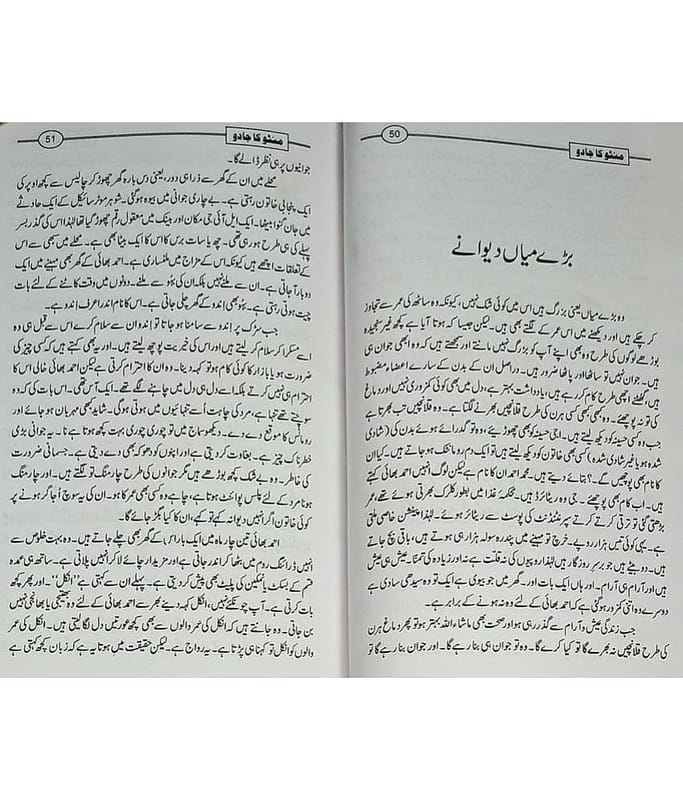 50
منٹو کا جادو
بڑے میاں دیوانے
وہ بڑے میاں یعنی بزرگ ہیں اس میں کوئی شک نہیں، کیونکہ وہ ساٹھ کی عمر سے تجاوز
کر چکے ہیں اور دیکھنے میں اس عمر کے لگتے بھی ہیں۔ لیکن جیسا کہ ہوتا آیا ہے کچھ غیر سنجیدہ
بوڑھے لوگوں کی طرح وہ بھی اپنے آپ کو بزرگ نہیں مانتے اور سمجھتے ہیں کہ وہ ابھی جوان ہی
ہیں۔ جوان نہیں تو ساٹھا اور پاٹھا ضرور ہیں۔ دراصل ان کے بدن کے سارے اعضا مضبوط
ہیں، گھٹنے اچھی طرح کام کر رہے ہیں، یادداشت بہتر ہے، دل میں بھی کوئی کمزوری نہیں اور دماغ
کی تو نہ پوچھئے۔ وہ کبھی بھی کسی ہرن کی طرح قلانچیں بھرنے لگتا ہے۔ وہ قلانچیں تب بھرتا ہے
جب وہ کسی حسینہ کو دیکھ لیتے ہیں۔ اجی حسینہ کو بھی چھوڑیئے، وہ تو گدرائے ہوئے بدن کی (شادی
شدہ ہو یا غیر شادی شدہ) کسی بھی خاتون کو دیکھ لیتے ہیں تو ایک دم رومانٹک ہو جاتے ہیں۔ کیا ان
کا نام بھی پوچھیں گے؟ بتائے دیتے ہیں۔ محمد احمد ان کا نام ہے لیکن لوگ انہیں احمد بھائی کہتے
ہیں۔ اب کام بھی پوچھئے۔ جی وہ ریٹائرڈ ہیں۔ محکمۂ غذا میں بطور کلرک بھرتی ہوئے تھے، عمر
بڑھتی گئی تو ترقی کرتے کرتے سپرنٹنڈنٹ کی پوسٹ سے ریٹائر ہوئے۔ لہٰذا پینشن خاصی ملتی
ہے۔ یہی کوئی تیس ہزار روپے۔ خرچ تو مہینے میں پندرہ سولہ ہزار ہی ہوتے ہیں، باقی بچ جاتے
ہیں۔ دو بیٹے ہیں جو برسر روزگار ہیں لہٰذا روپیوں کی نہ قلت ہے نہ اور زیادہ کی تمنا۔ عیش ہی عیش
ہیں اور آرام ہی آرام۔ ہاں ایک بات اور۔ گھر میں جو بیوی ہے ایک تو وہ سیدھی سادی ہے
دوسرے وہ اتنی کمزور ہو گئی ہے کہ احمد بھائی کے لئے وہ نہ ہونے کے برابر ہے۔
جب زندگی عیش و آرام سے گذر رہی ہو اور صحت بھی ماشاء اللہ بہتر ہو تو پھر دماغ ہرن
کی طرح قلانچیں نہ بھرے گا تو کیا کرے گا۔ وہ تو جوان ہی بنا رہے گا۔ اور جوان بنا رہے گا تو
51
منٹو کا جادو
جوانیوں پر ہی نظر ڈالے گا۔
محلے میں ان کے گھر سے ذرا ہی دور، یعنی دس بارہ گھر چھوڑ کر چالیس سے کچھ اوپر کی
ایک پنجابی خاتون رہتی ہے۔ بے چاری جوانی میں بیوہ ہو گئی۔ شوہر موٹر سائیکل کے ایک حادثے
میں جان گنوا بیٹھا۔ ایک ایل آئی جی مکان اور بینک میں معقول رقم چھوڑ گیا تھا لہٰذا اس کی گذر بسر
پہلے کی ہی طرح ہو رہی تھی۔ چھ یا سات برس کا اس کا ایک بیٹا بھی ہے۔ محلے میں بھی سے اس
کے تعلقات اچھے ہیں کیونکہ اس کے مزاج میں ملنساری ہے۔ احمد بھائی کے گھر بھی مہینے میں ایک
دو بار آجاتی ہے۔ ان سے ملنے نہیں بلکہ ان کی بہو سے ملنے۔ دونوں میں وقت کاٹنے کے لئے بات
چیت ہوتی رہتی ہے۔ بہو بھی اندو کے گھر چلی جاتی ہے۔ اس کا نام اندرا عرف اندو ہے۔
جب سڑک پر اندو سے سامنا ہو جاتا تو اندو ان سے سلام کرے اس سے قبل ہی وہ
اسے مسکرا کر سلام کر لیتے ہیں اور اس کی خیریت پوچھ لیتے ہیں۔ اور یہ بھی کہتے ہیں کسی چیز کی
ضرورت ہو یا بازار کا کوئی کام ہو تو کہہ دینا۔ وہ ان کا احترام کرتی ہے لیکن احمد بھائی خالی اس کا
احترام ہی نہیں کرتے بلکہ اسے دل ہی دل میں چاہنے لگے تھے۔ ایک آس تھی۔ اس بات کی کہ وہ
سوچتے تھے تنہا ہے، مرد کی چاہت اُسے تنہائیوں میں ہوتی ہوگی۔ شاید کبھی مہربان ہو جائے اور
رومانس کا موقع دے دے۔ دیکھو سماج میں تو چوری چوری بہت کچھ ہوتا ہے نا۔ یہ جوانی بڑی
خطرناک چیز ہے۔ بغاوت کر دیتی ہے اور اپنوں کو دھوکہ بھی دے دیتی ہے۔ جسمانی ضرورت
کی خاطر۔ وہ بے شک کچھ بوڑھے ہیں مگر جوانوں کی طرح چارمنگ تو لگتے ہیں۔ اور چارمنگ
ہونا مرد کے لئے پلس پوائنٹ ہوتا ہے، چاہے وہ کسی بھی عمر کا ہو۔ ان کی یہ سوچ اُجاگر ہونے پر
کوئی خاتون اگر انہیں دیوانہ کہے تو کہے، ان کا کیا بگڑ جائے گا۔
احمد بھائی تین چار ماہ میں ایک بار اس کے گھر بھی چلے جاتے ہیں۔ وہ بہت خلوص سے
انہیں ڈرائنگ روم میں بٹھا کر اندر جاتی ہے اور مزیدار چائے لا کر انہیں پلاتی ہے۔ ساتھ ہی عمدہ
قسم کے بسکٹ یا نمکین کی پلیٹ بھی پیش کر دیتی ہے۔ پہلے ان سے کہتی ہے "انکل"۔ اور پھر کچھ
بات کرتی ہے۔ آپ چونکئے نہیں، انکل کہہ دینے بھر سے احمد بھائی کے لئے وہ بھتیجی یا بھانجی نہیں
بن جاتی۔ وہ جانتے ہیں کہ انکل کی عمر والوں سے بھی کچھ عورتیں دل لگا لیتی ہیں۔ انکل کی عمر
والوں کو انکل تو کہنا ہی پڑتا ہے۔ یہ رواج ہے۔ لیکن حقیقت میں ہوتا یہ ہے کہ زبان کچھ کہتی ہے